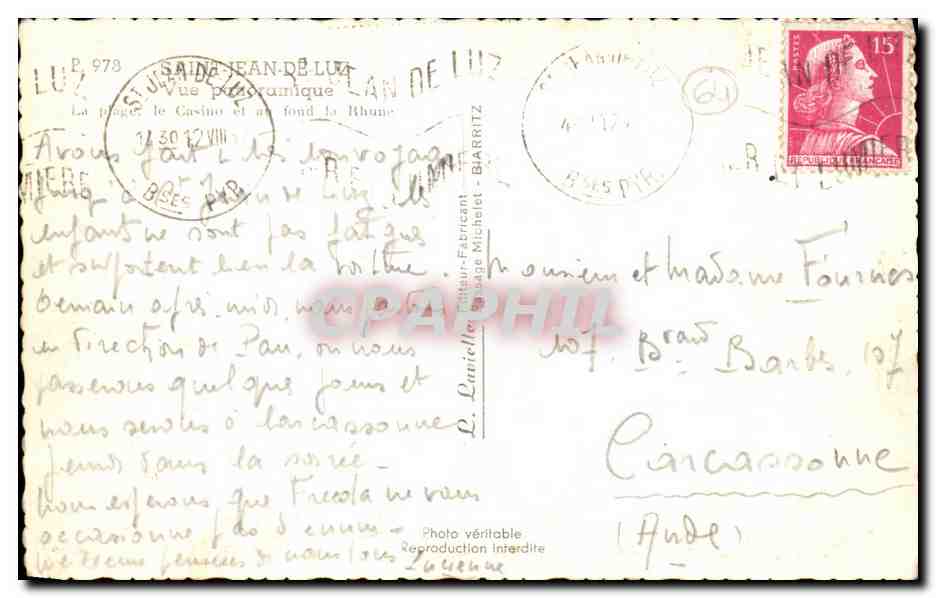 P. 978 SAINT-JEAN-DE-LUZ
Vue panoramique
La plage, le Casino et au fond la Rhune
ST JEAN-DE-LUZ
14 30 12 VIII
BSES PYR.
LUZ
LAN DE LUZ
LUMIERE
BSES PYR.
64
POSTES
15F
REPUBLIQUE FRANCAISE
Avons fait bon voyage
jusqu'à St Jean de Luz. Les
enfants ne sont pas fatigués
et supportent bien la voiture.
Demain après-midi, nous
en direction de Pau, où nous
passerons quelques jours et
nous serons à Carcassonne
jeudi dans la soirée -
nous espérons que Freda ne vous
occasionne pas d'ennuis -
pensées de nous tous
Lucienne
L. Lavielle, Editeur-Fabricant
Passage Michelet - BIARRITZ
Photo véritable
Reproduction interdite
Monsieur et Madame Fournès
107. Brard Barbès. 107
Carcassonne
(Aude)
CPAPHIL